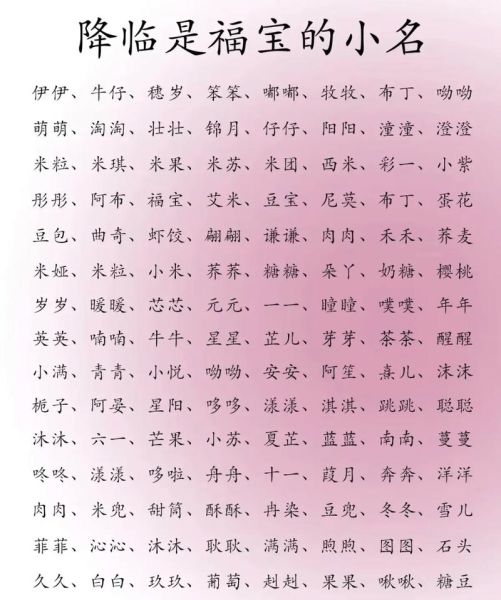 降临是福宝的小名
伊伊、牛仔、穗岁、笨笨、嘟嘟、牧牧、布丁、呦呦
萌萌、淘淘、壮壮、锦月、仔仔、阳阳、潼潼、澄澄
米粒、米琪、米果、米苏、米团、西米、彩一、小紫
彤彤、阿布、福宝、艾米、豆宝、尼莫、布丁、蛋花
豆包、曲奇、虾饺、翩翩、谦谦、肉肉、禾禾、荞麦
米娅、米粒、小米、荞荞、糖糖、朵丫、奶糖、樱桃
岁岁、暖暖、芯芯、元元、一一、瞳瞳、噗噗、年年
英英、喃喃、牛牛、星星、芷儿、芽芽、茶茶、醒醒
小满、青青、小悦、呦呦、安安、阿笙、熹儿、沫沫
栀子、阿晏、星阳、哆哆、漾漾、淇淇、跳跳、聪聪
沐沐、六一、芒果、小苏、夏芷、蓝蓝、南南、蔓蔓
咚咚、漾漾、哆啦、舟舟、十一、葭月、奔奔、洋洋
肉肉、米兜、甜筒、酥酥、冉染、豆兜、冬冬、雪儿
菲菲、沁沁、沐沐、耿耿、满满、煦煦、图图、石头
久久、白白、玖玖、葡萄、赳赳、果果、啾啾、糖豆